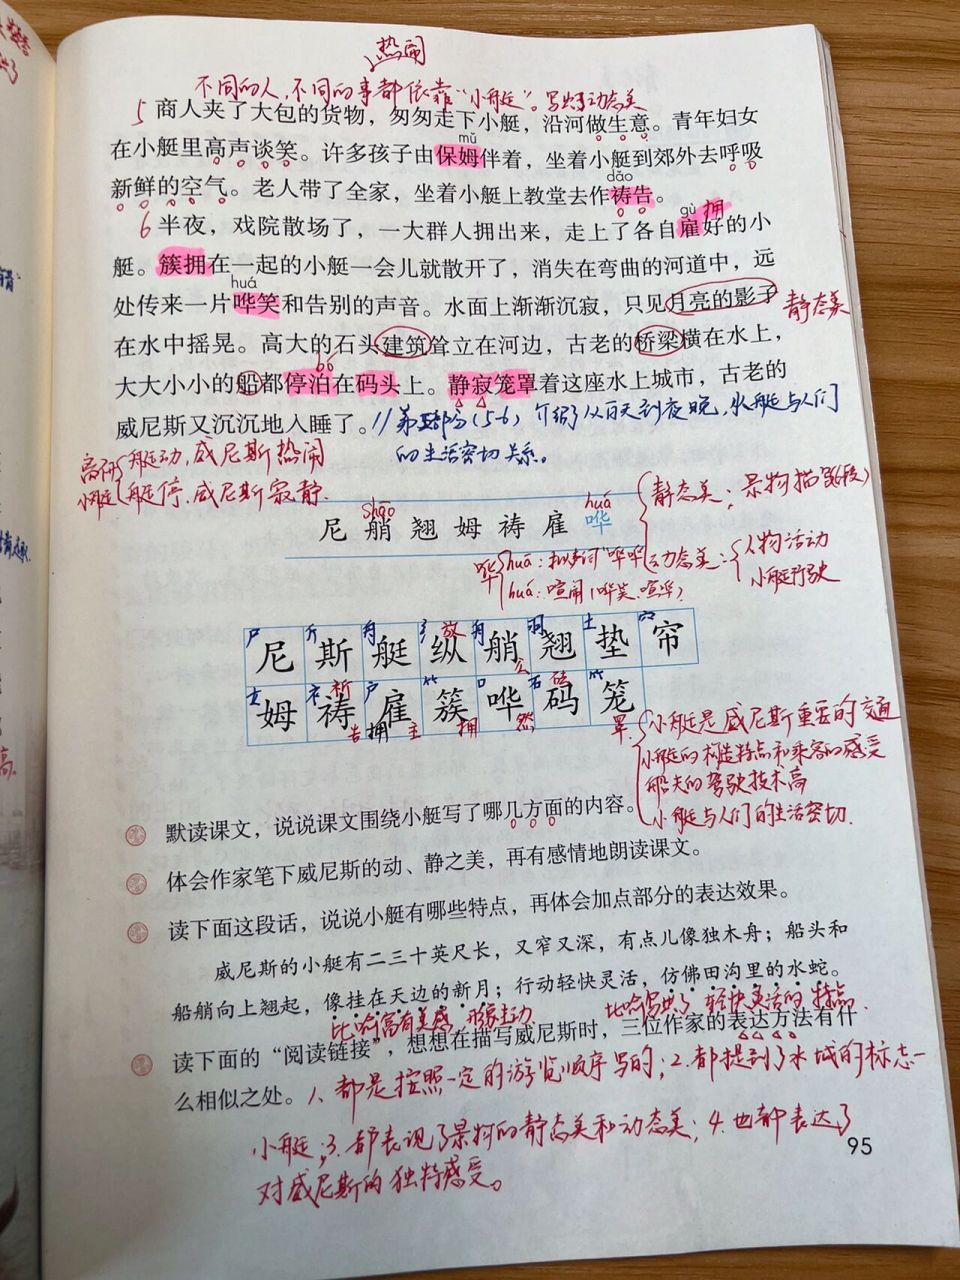 热闹
不同的人,不同的事都依靠“小艇”。写出了动态美
5 商人夹了大包的货物，匆匆走下小艇，沿河做生意。青年妇女
在小艇里高声谈笑。许多孩子由保姆伴着，坐着小艇到郊外去呼吸
mǔ
dǎo
新鲜的空气。老人带了全家，坐着小艇上教堂去作祷告。
gù 拥
6 半夜，戏院散场了，一大群人拥出来，走上了各自雇好的小
艇。簇拥在一起的小艇一会儿就散开了，消失在弯曲的河道中，远
huá
处传来一片哗笑和告别的声音。水面上渐渐沉寂，只见月亮的影子
静态美
在水中摇晃。高大的石头建筑耸立在河边，古老的桥梁横在水上，
bó
大大小小的船都停泊在码头上。静寂笼罩着这座水上城市，古老的
威尼斯又沉沉地入睡了。
//第三部分(5-6) 介绍从白天到夜晚,小艇与人们
的生活密切关系。
小艇
艇动,威尼斯热闹
艇停.威尼斯寂静.
shāo
huá
尼 艄 翘 姆 祷 雇 哗
静态美:景物描写(6段)
动态美:
人物活动
小艇行驶
哗
huā:拟声词“哗哗”
huá:喧闹(哗笑.喧哗)
尸 斤 舟 纟 放 舟 羽 土
尼 斯 艇 纵 艄 翘 垫 帘
公
女 礻 祈 户 竹 口 石 砝 竹
姆 祷 雇 簇 哗 码 笼
告 拥 主 拥 然 罩
小艇是威尼斯重要的交通
小艇的构造特点和乘客的感受
船夫的驾驶技术高
小艇与人们的生活密切.
默读课文，说说课文围绕小艇写了哪几方面的内容。
体会作家笔下威尼斯的动、静之美，再有感情地朗读课文。
读下面这段话，说说小艇有哪些特点，再体会加点部分的表达效果。
威尼斯的小艇有二三十英尺长，又窄又深，有点儿像独木舟；船头和
船艄向上翘起，像挂在天边的新月；行动轻快灵活，仿佛田沟里的水蛇。
比喻富有美感,形象生动
比喻写出了 轻快灵活的 特点.
读下面的“阅读链接”，想想在描写威尼斯时，三位作家的表达方法有什
么相似之处。
1、都是按照一定的游览顺序写的;2.都提到了水城的标志一
小艇;3.都表现了景物的静态美和动态美;4.也都表达了
对威尼斯的独特感受。
95